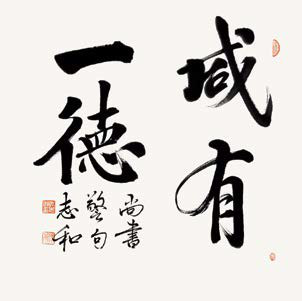 咸有
一德
尚書
警句
志和